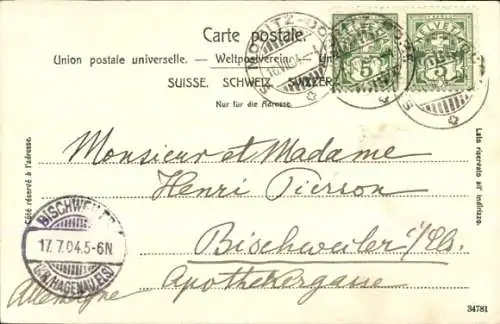 Carte postale.
Union postale universelle. — Weltpostverein. — Un
SUISSE. SCHWEIZ. SVIZZER
Nur für die Adresse.
HELVETIA
5
5
Côté réservé à l'adresse.
Lato riservato all' indirizzo.
Monsieur et Madame
Henri Pierson
Bischweiler i/Els.
Apothekergasse
Allemagne
BISCHWEILER
17.7.04.5-6N
(KR. HAGENAU ELS)
34781